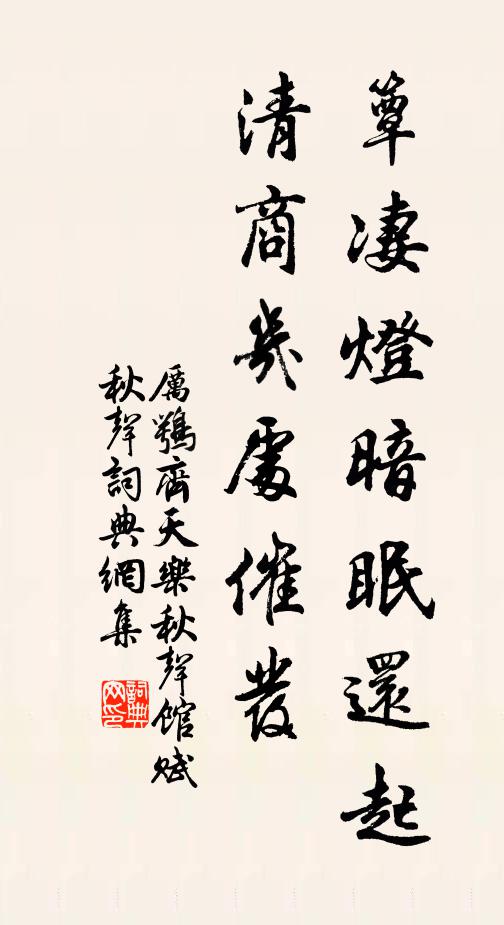 簟凄燈暗眠還起
清商幾處催發
厲鶚齊天樂秋聲館賦
秋聲詞典網集
詞典網印